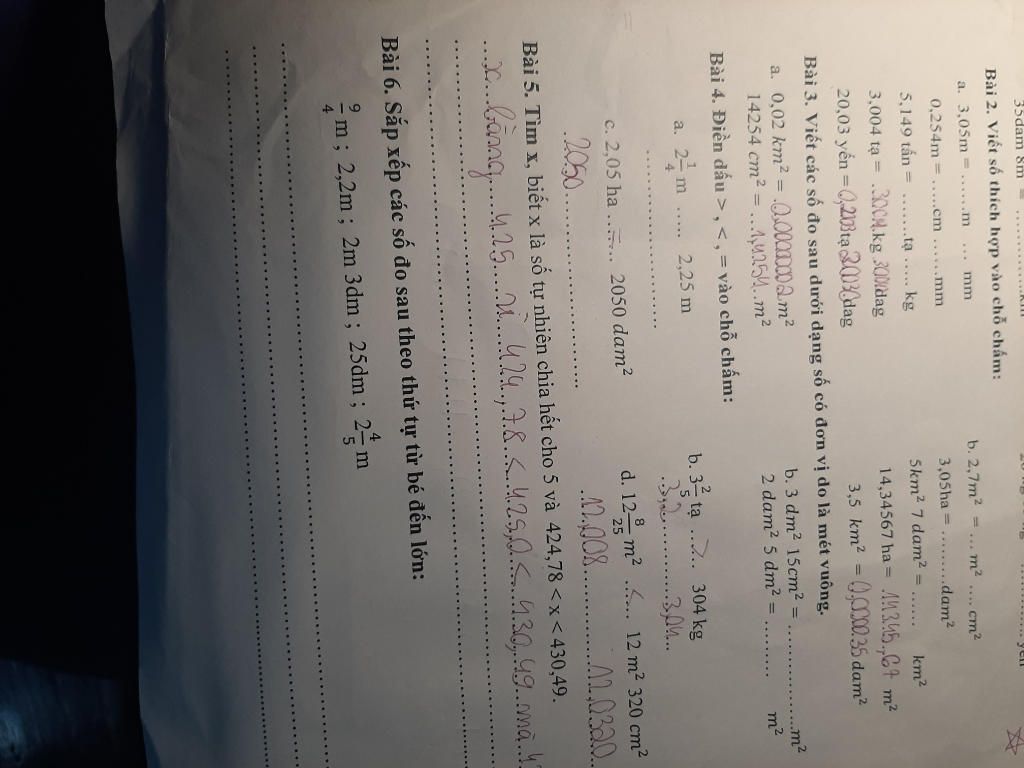 35dam 8m =
Bài 2. Viết số thích hợp vào chỗ chấm:
a. 3,05m = .......m ... mm
b. 2,7m² = ... m² .... cm²
0,254m = .....cm ......mm
3,05ha = .........dam²
5,149 tấn = .......tạ ..... kg
5km² 7 dam² = ...... km²
3,004 tạ = kg dag
14,34567 ha = m²
20,03 yến = tạ dag
3,5 km² = 0,00035 dam²
Bài 3. Viết các số đo sau dưới dạng số có đơn vị đo là mét vuông.
a. 0,02 km² = m²
b. 3 dm² 15cm² = .............m²
14254 cm² = ...1,4254..m²
2 dam² 5 dm² = ........ m²
Bài 4. Điền dấu > , < , = vào chỗ chấm:
a. 2 1/4 m ..... 2,25 m
b. 3 2/5 tạ ..>.. 304 kg
3,04
c. 2,05 ha ..=.. 2050 dam²
d. 12 8/25 m² .<... 12 m² 320 cm²
2050
12,008 12,0320
Bài 5. Tìm x, biết x là số tự nhiên chia hết cho 5 và 424,78 < x < 430,49.
x bằng 425 vì 424,78 < 425,0 < 430,49 mà
Bài 6. Sắp xếp các số đo sau theo thứ tự từ bé đến lớn:
9/4 m ; 2,2m ; 2m 3dm ; 25dm ; 2 4/5 m